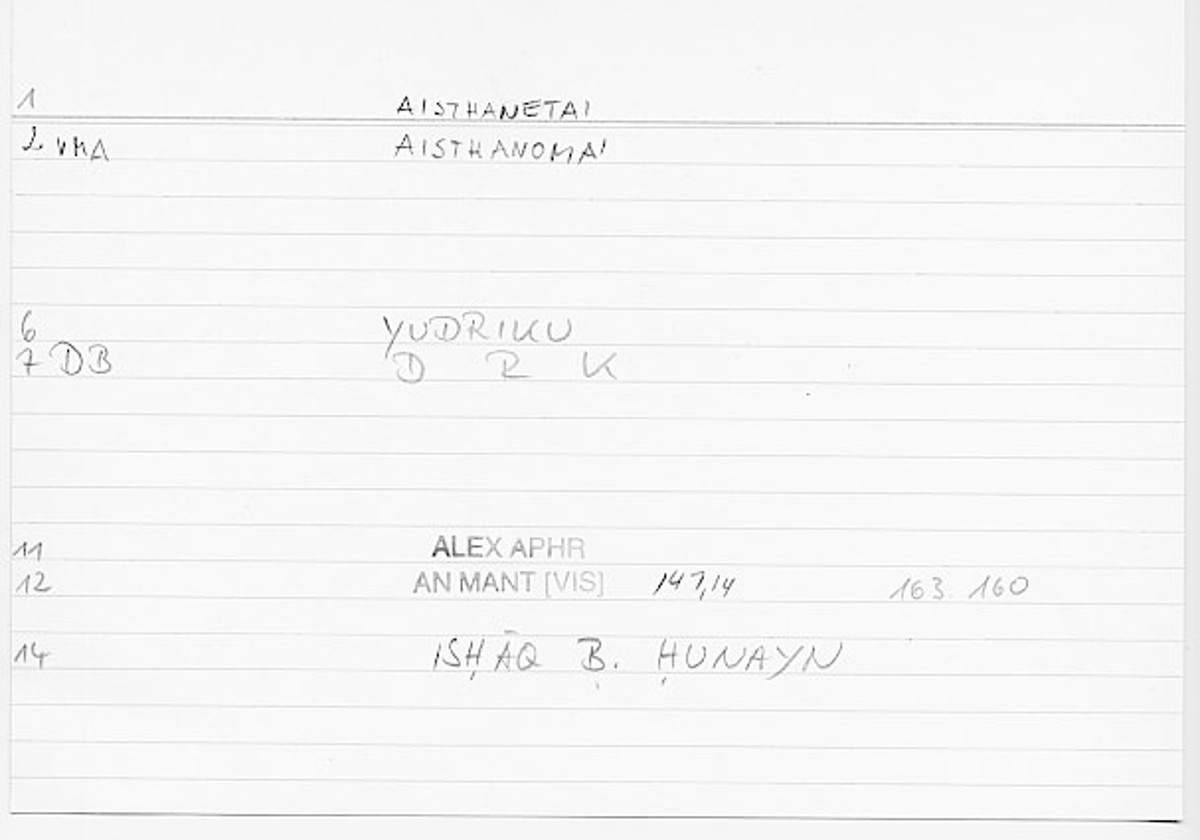 1 AISTHANETAI
2 VMA AISTHANOMAI
6 YUDRIKU
7 DB D R K
11 ALEX APHR
12 AN MANT [VIS] 147,14 163 160
14 ISḤĀQ B. ḤUNAYN